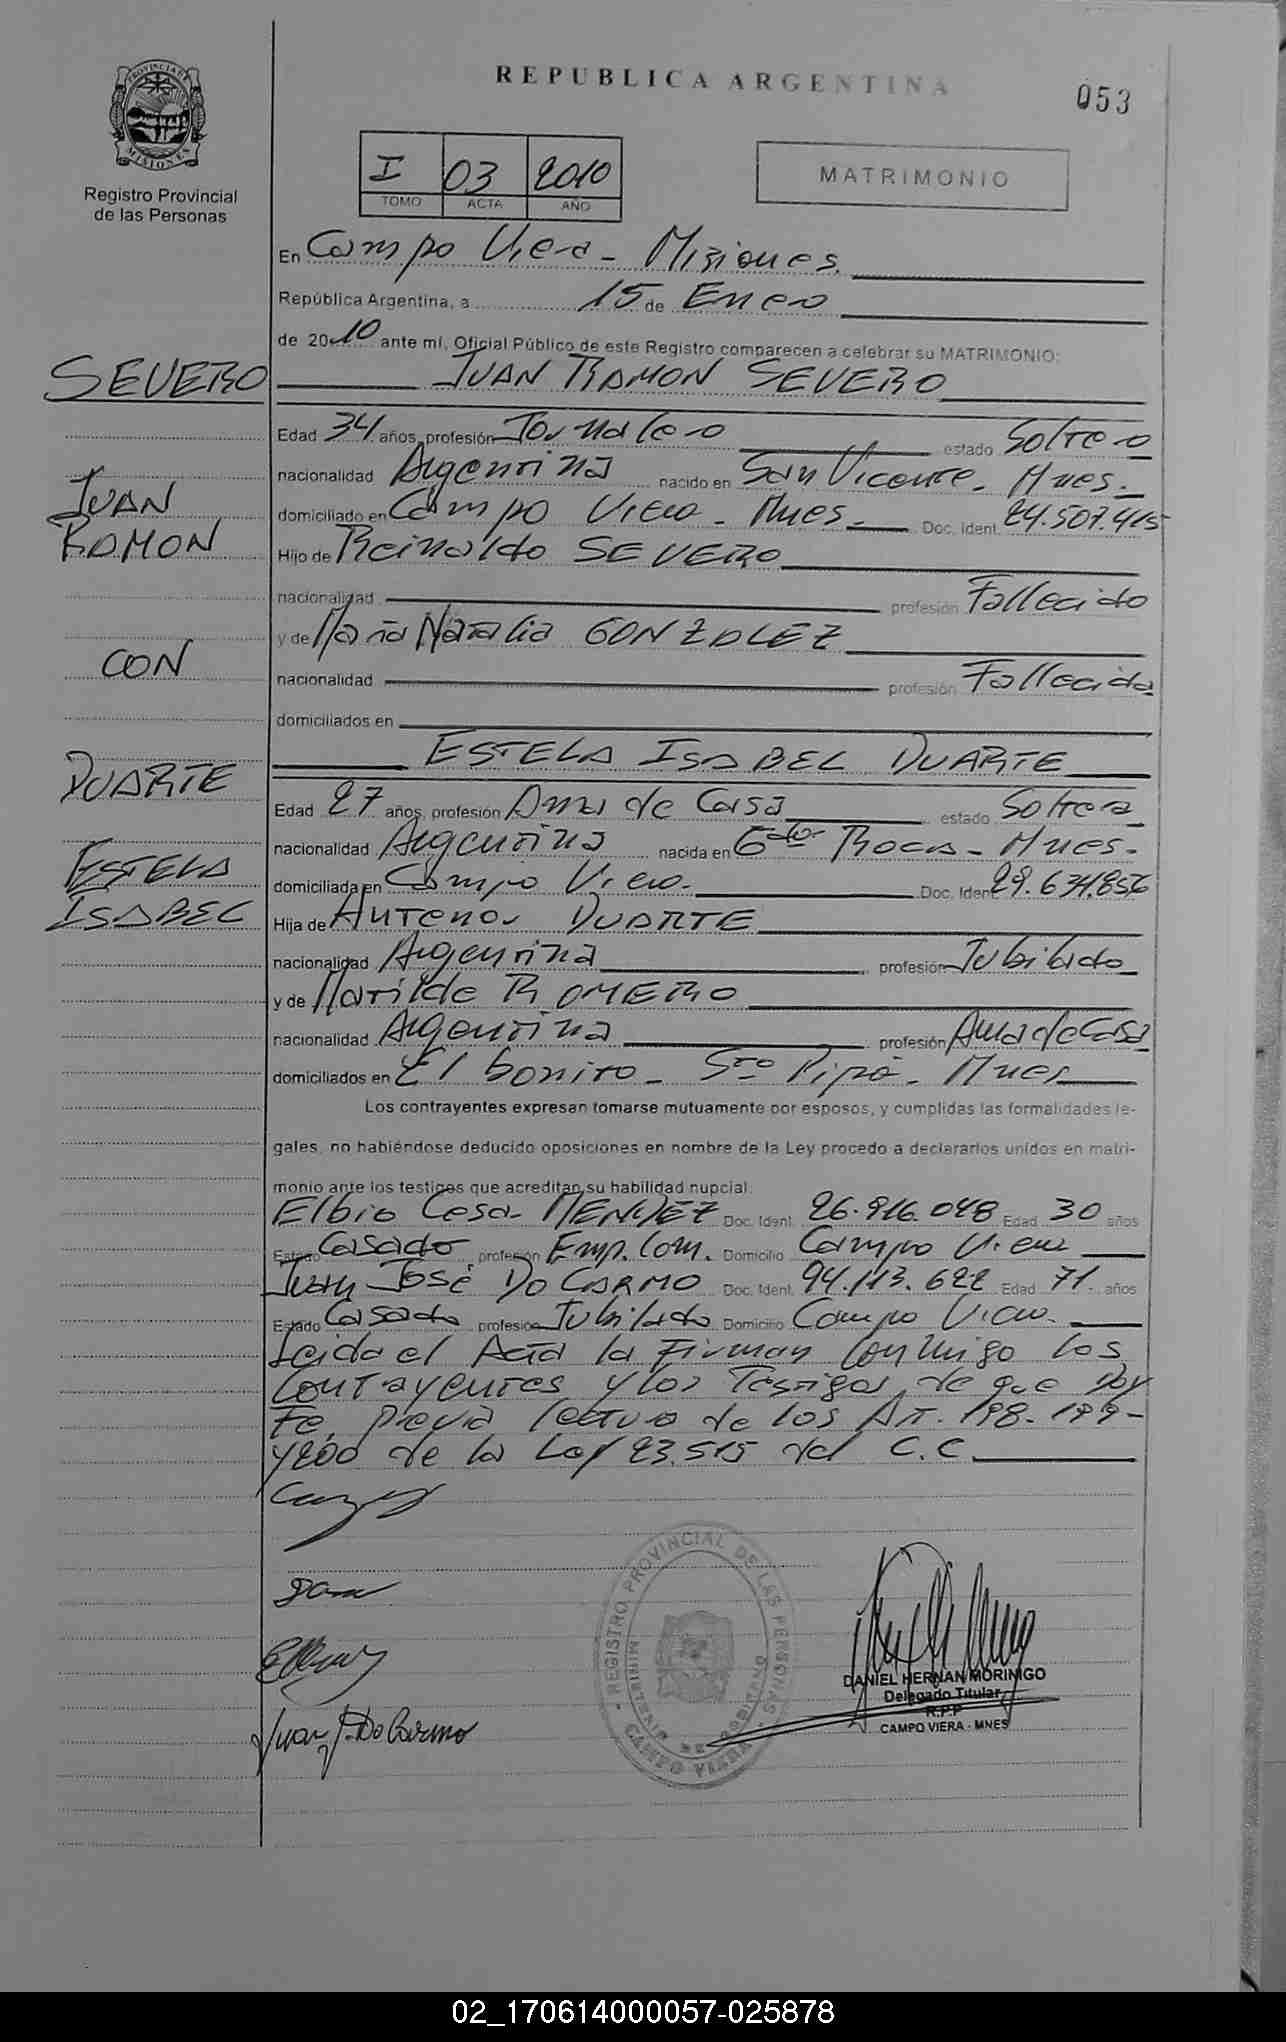 REPUBLICA ARGENTINA
053
PROVINCIA DE MISIONES
Registro Provincial
de las Personas
I 03 2010
TOMO ACTA AÑO
MATRIMONIO
En Campo Viera - Misiones.
República Argentina, a 15 de Enero
de 2010 ante mí, Oficial Público de este Registro comparecen a celebrar su MATRIMONIO:
SEVERO JUAN RAMON SEVERO
Edad 34 años, profesión Jornalero estado Soltero
nacionalidad Argentina nacido en San Vicente - Mnes.
JUAN
domiciliado en Campo Viera - Mnes. Doc. Ident. 24.507.415
RAMON
Hijo de Reinaldo SEVERO
nacionalidad profesión Fallecido
y de Maria Natalia GONZALEZ
CON
nacionalidad profesión Fallecida
domiciliados en
ESTELA ISABEL DUARTE
DUARTE
Edad 27 años, profesión Ama de Casa estado Soltera
nacionalidad Argentina nacida en Gdor Roca - Mnes.
ESTELA
domiciliada en Campo Viera. Doc. Ident. 29.634.856
ISABEL
Hija de Antenor DUARTE
nacionalidad Argentina profesión Jubilado
y de Matilde ROMERO
nacionalidad Argentina profesión Ama de Casa
domiciliados en El bonito - Sto Pipó - Mnes
Los contrayentes expresan tomarse mutuamente por esposos, y cumplidas las formalidades le-
gales, no habiéndose deducido oposiciones en nombre de la Ley procedo a declararlos unidos en matri-
monio ante los testigos que acreditan su habilidad nupcial.
Elbio Cesar MENDEZ Doc. Ident. 26.816.048 Edad 30 años
Estado Casado profesión Emp. Com. Domicilio Campo Viera
Juan José DO CARMO Doc. Ident. 94.113.622 Edad 71. años
Estado Casado profesión Jubilado Domicilio Campo Viera.
Leida el Acta la Firman conmigo los
Contrayentes y los Testigos de que Doy
Fe, previa lectura de los Art. 198-199-
y 200 de la Ley 23.515 del C.C
Juan J. Do Carmo
REGISTRO PROVINCIAL DE LAS PERSONAS
MINISTERIO DE GOBIERNO
CAMPO VIERA
DANIEL HERNAN MORINIGO
Delegado Titular
R.P.P
CAMPO VIERA - MNES
02_170614000057-025878